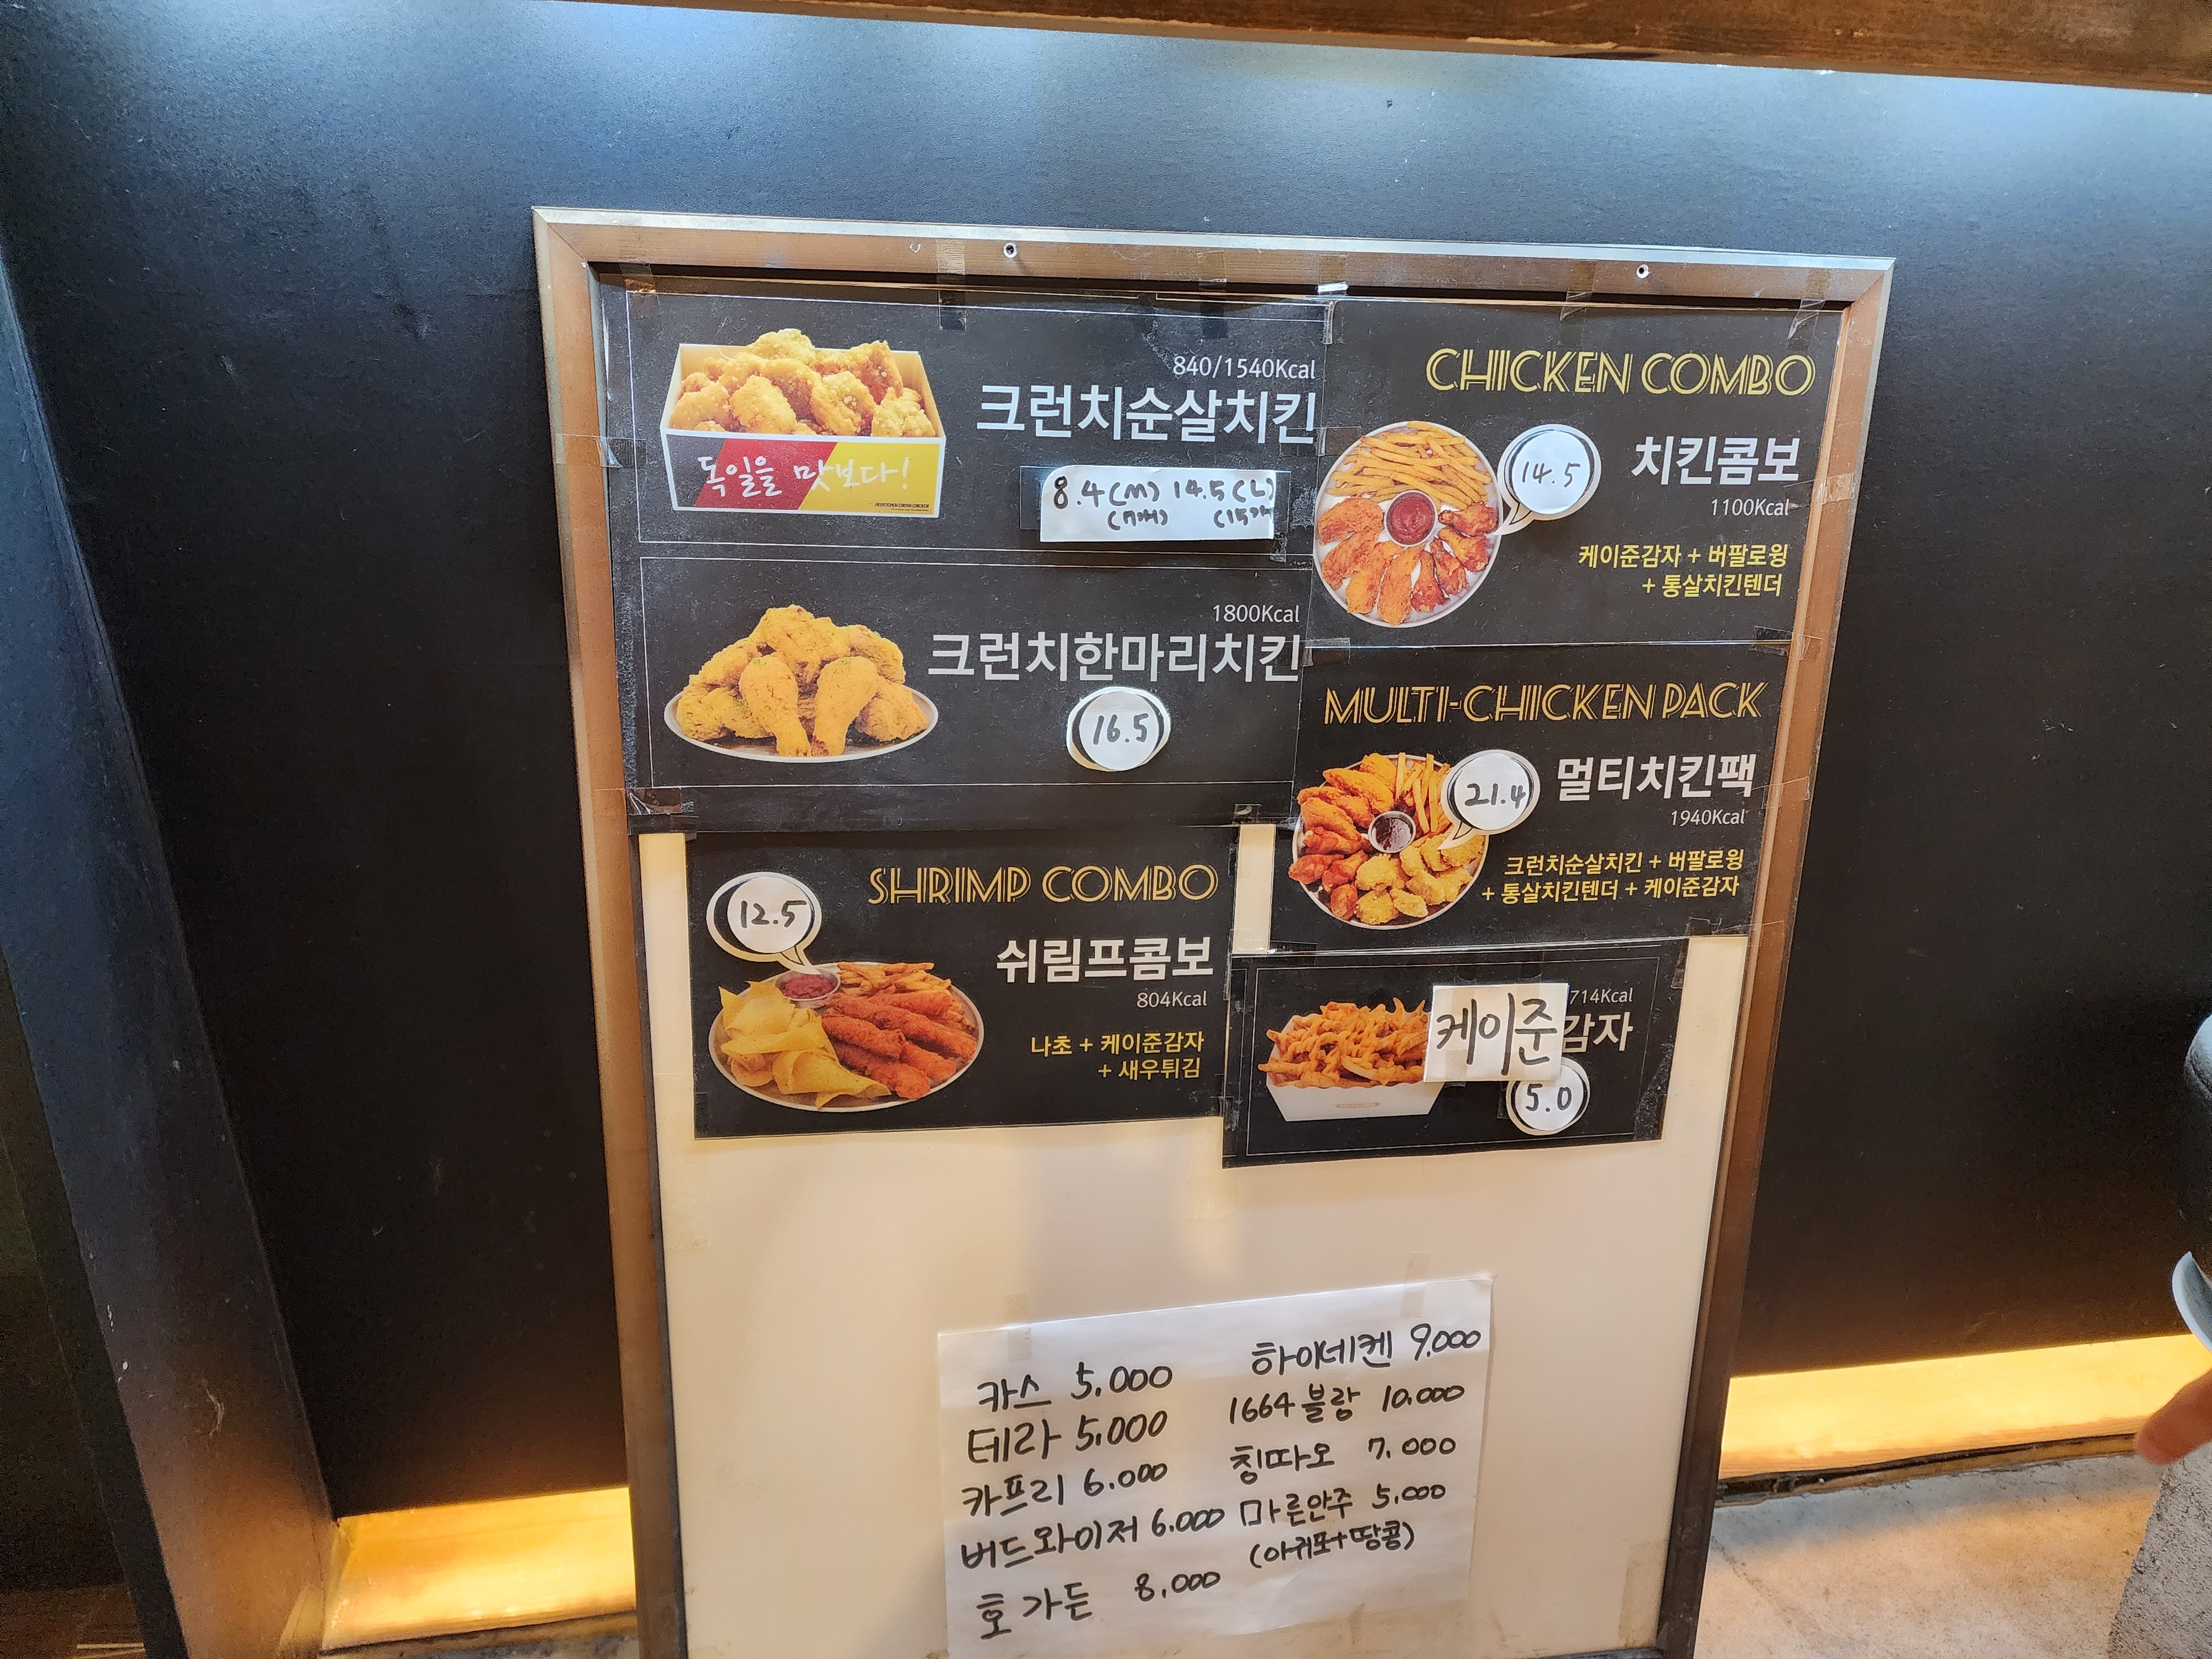 840/1540Kcal
크런치순살치킨
독일을 맛보다!
8.4(M) 14.5(L)
(7개) (15개
1800Kcal
크런치한마리치킨
16.5
CHICKEN COMBO
14.5
치킨콤보
1100Kcal
케이준감자 + 버팔로윙
+ 통살치킨텐더
MULTI-CHICKEN PACK
21.4
멀티치킨팩
1940Kcal
크런치순살치킨 + 버팔로윙
+ 통살치킨텐더 + 케이준감자
SHRIMP COMBO
12.5
쉬림프콤보
804Kcal
나초 + 케이준감자
+ 새우튀김
714Kcal
케이준감자
5.0
카스 5,000
테라 5,000
카프리 6.000
버드와이저 6.000
호가든 8,000
하이네켄 9,000
1664블랑 10,000
칭따오 7,000
마른안주 5,000
(아귀포+땅콩)